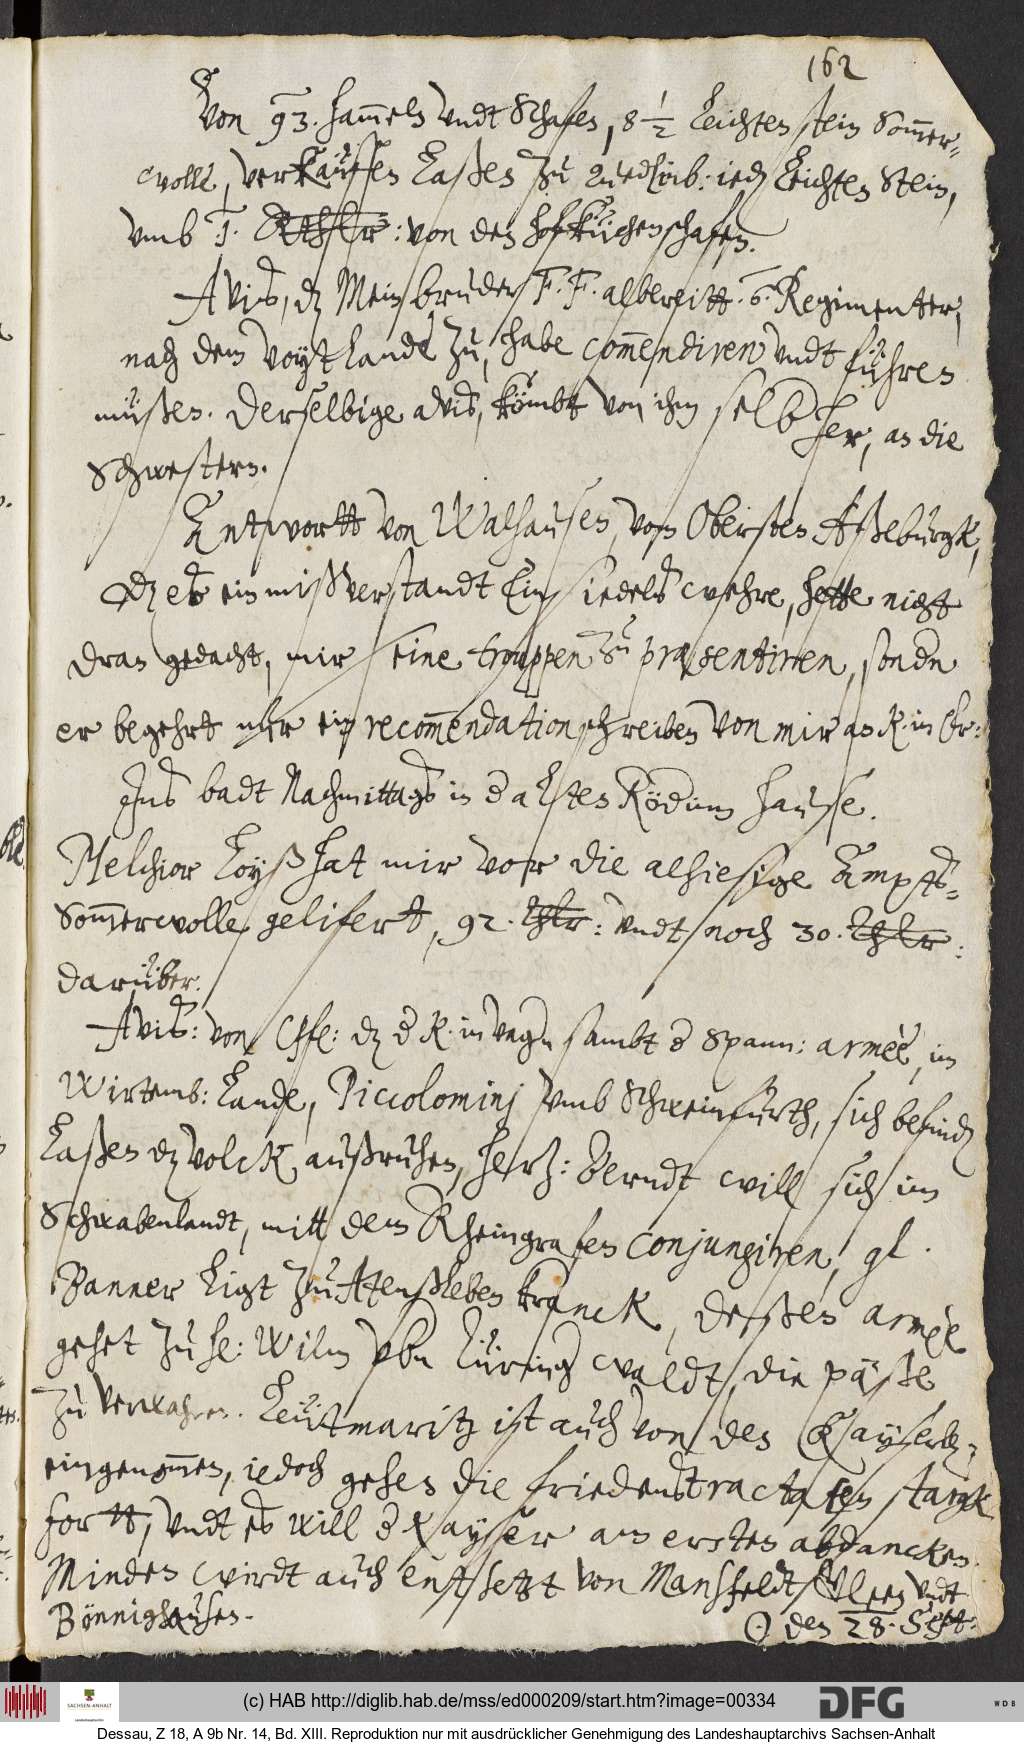 162
Von 93. hammeln undt Schafen, 8 1/2 leichten stein Sommer=
wolle, verkauffen laßen zu Quedlinb: iedn leichten Stein,
umb T. Rthlr: von den hofküchenschafen.
Avis, dz Mein bruder F. F. albereitt 6. Regimenter,
nach dem Voygtlande zu, habe commendiren undt führen
müßen. Derselbige avis, kömbt von ihm selbsher, an die
Schwestern.
Antwortt von Walhausen, vom Obersten Aßeburgk,
dz es ein mißverstandt Einsiedels wehre, hette nicht
dran gedacht, mir seine trouppen zu præsentiren, sondn
er begehrt nur ein recommendationschreiben von mir an K. in
Ins badt Nachmittags in d alten Rödinn hause.
Melchior Loyß hat mir vor die alhiesige Ampts=
Sommerwolle gelifert, 92. Thlr: undt noch 30. Thlr:
darüber.
Avis: von dz d K. in Ungn sambt d Spann: armèe, im
Wirtemb: Lande, Piccolominj umb Schweinfurth, sich befindn
Laßen dz volck außruhen, herz: Berndt will sich im
Schwabenlandt, mitt dem Rheingrafen conjungiren, gl.
Banner ligt zu kranck, deßen armèe
gehet zu h: Wilm ubn Türingwaldt, die päße
zu verwahren. Leutmaritz ist auch von den Kayserln:
eingenommen, iedoch gehen die friedenstractaten starck
fortt, undt es will d Kayser am ersten abdancken.
Minden wirdt auch entsetzt von Mansfeldt, undt
Bönnighausen.
☉ den 28. Sept:
(c) HAB http://diglib.hab.de/mss/ed000209/start.htm?image=00334
SACHSEN-ANHALT
Landeshauptarchiv
DFG
WDB
Dessau, Z 18, A 9b Nr. 14, Bd. XIII. Reproduktion nur mit ausdrücklicher Genehmigung des Landeshauptarchivs Sachsen-Anhalt